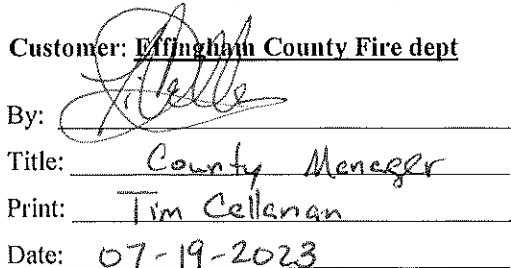 Customer: Effingham County Fire dept
By:
Title: County Manager
Print: Tim Callanan
Date: 07-19-2023